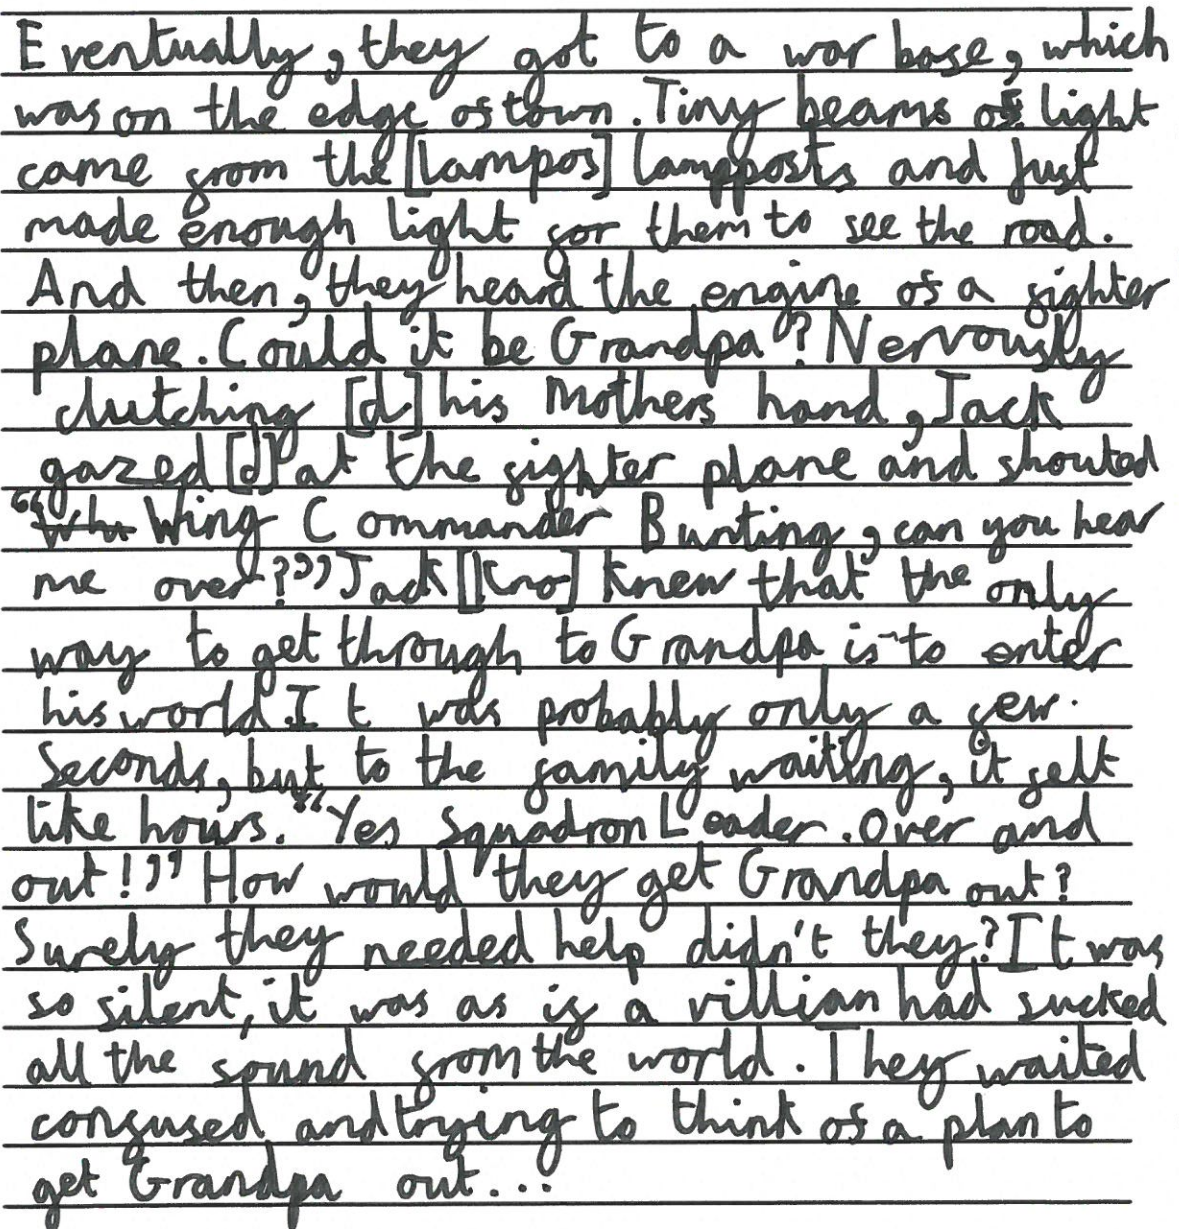 Eventually, they got to a war base, which
was on the edge of town. Tiny beams of light
came from the [lampos] lampposts and Just
made enough light for them to see the road.
And then, they heard the engine of a fighter
plane. Could it be Grandpa? Nervously
clutching [d] his Mothers hand, Jack
gazed [d] at the fighter plane and shouted
“Whi Wing Commander Bunting, can you hear
me over?” Jack [kno] knew that the only
way to get through to Grandpa is to enter
his world. It was probably only a few
Seconds, but to the family waiting, it felt
like hours. “Yes Squadron Leader. Over and
out!” How would they get Grandpa out?
Surely they needed help didn't they? It was
so silent, it was as if a villian had sucked
all the sound from the world. They waited
confused and trying to think of a plan to
get Grandpa out...